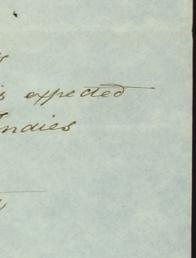 is expected
Indies